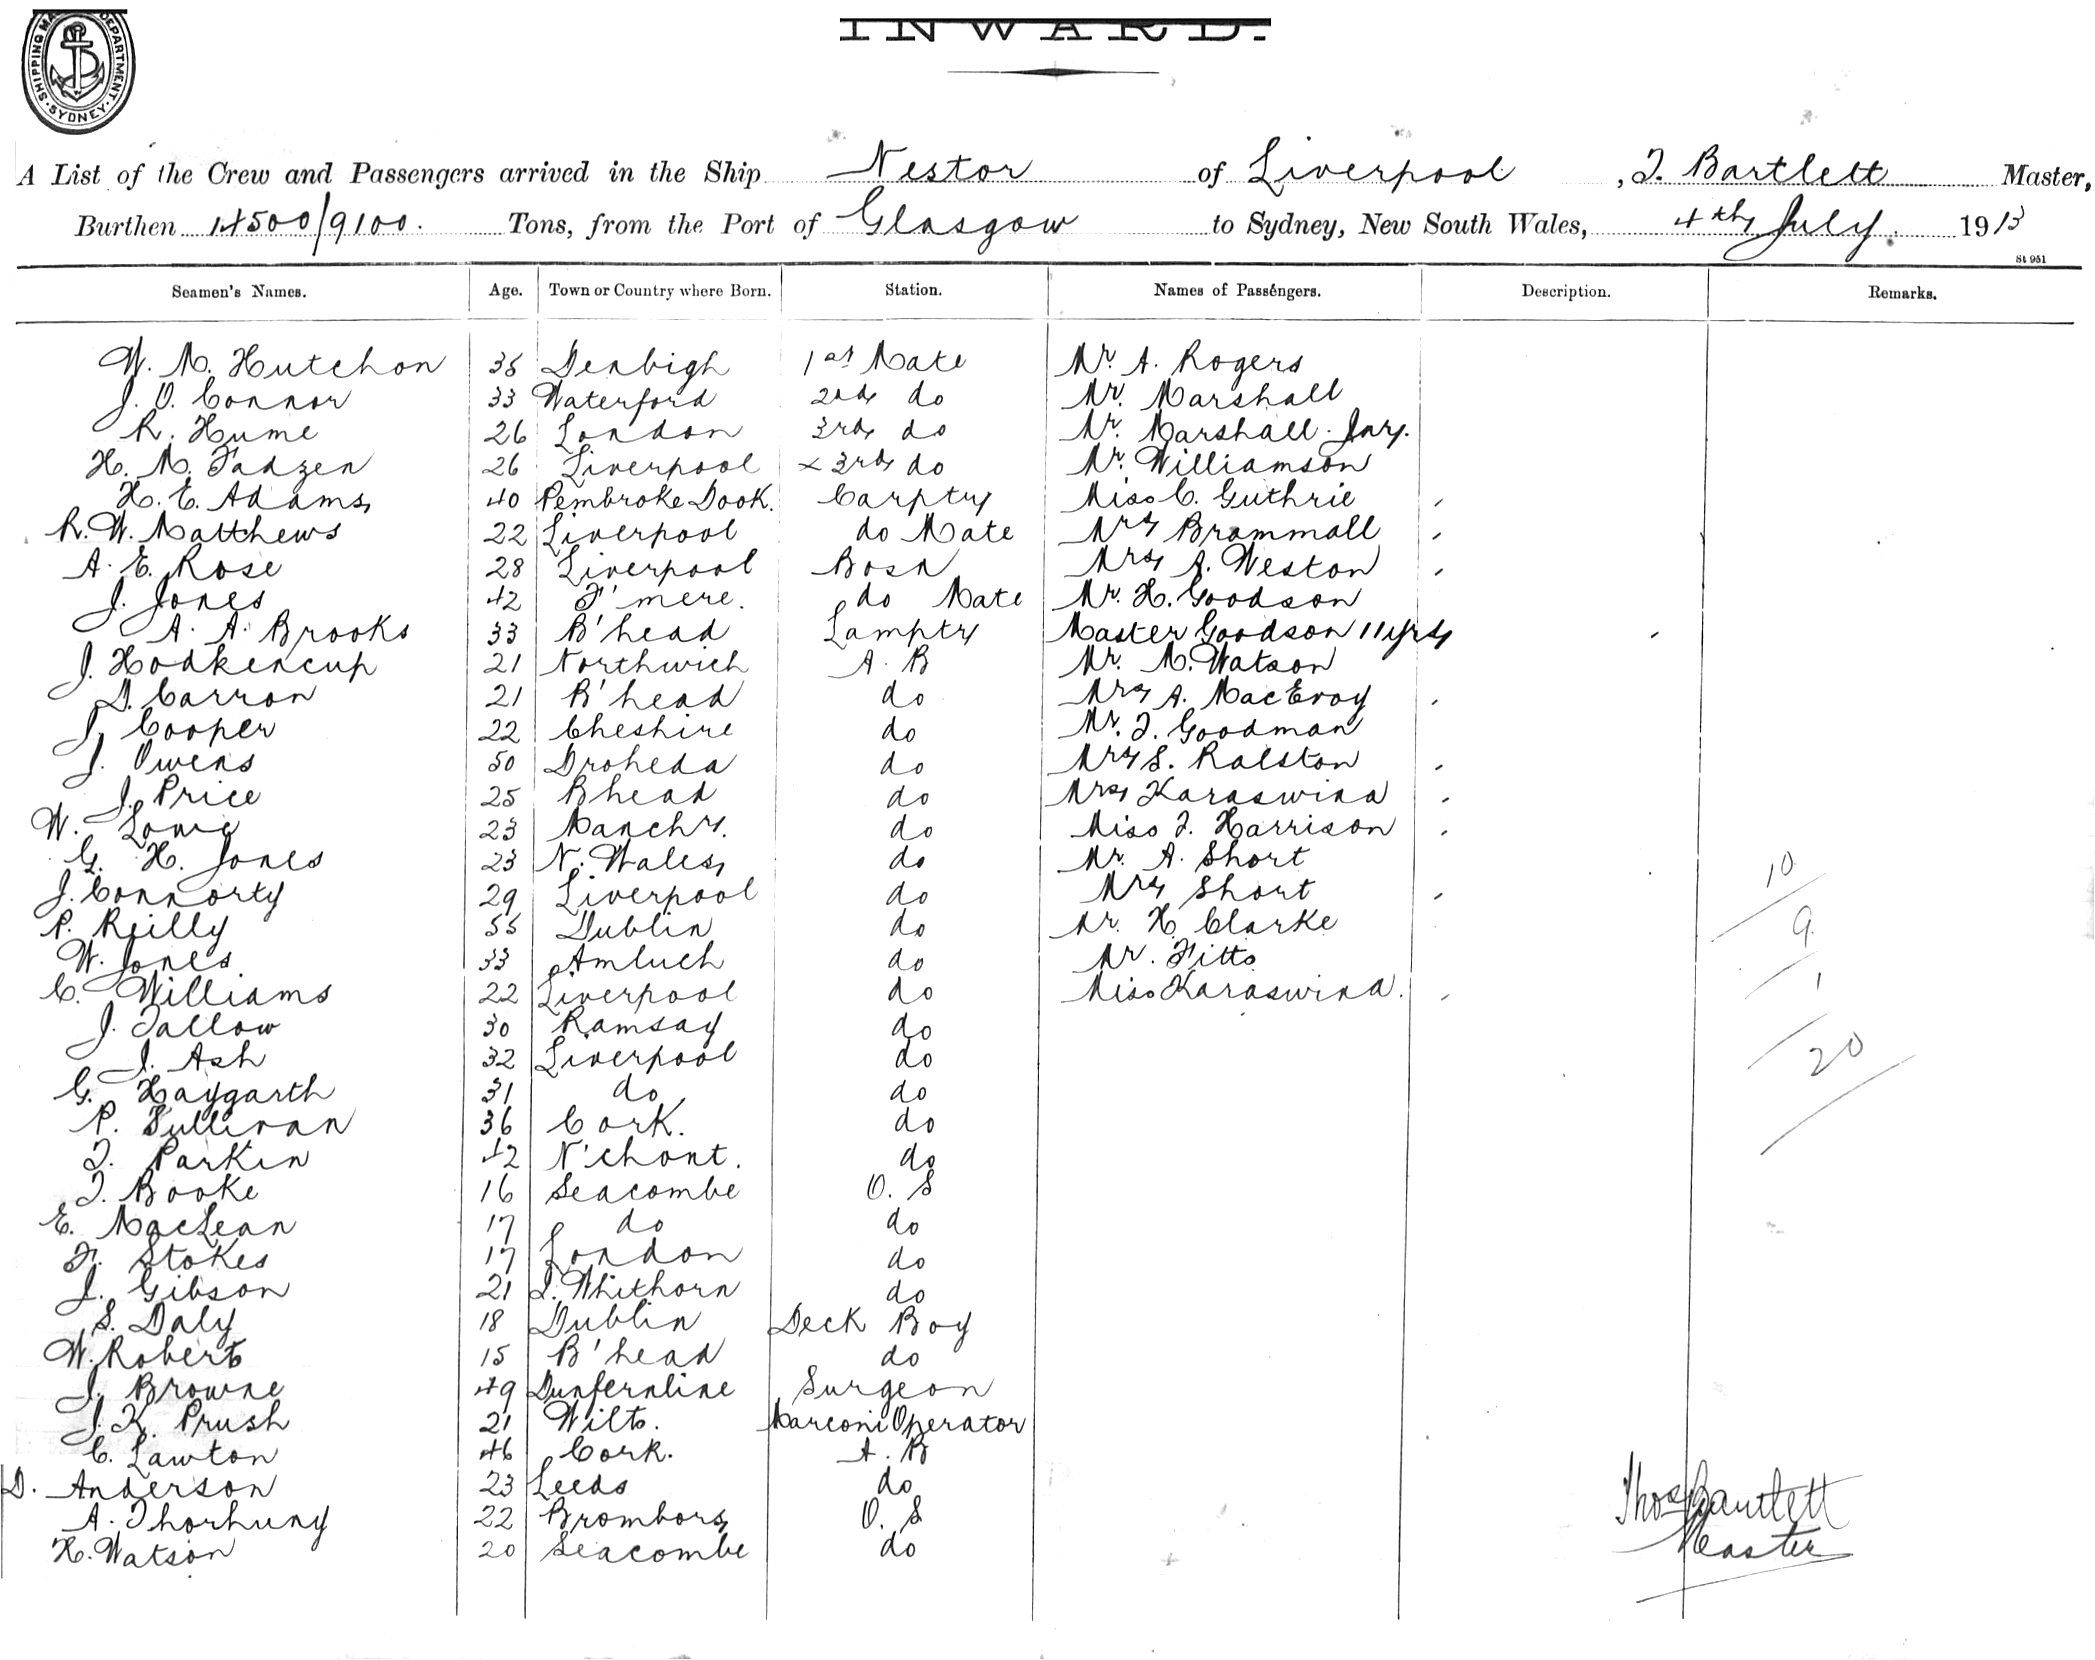 SHIPPING MA DEPARTMENT. SYDNEY.
INWARD.
A List of the Crew and Passengers arrived in the Ship Nestor of Liverpool, T. Bartlett Master,
Burthen 14500/9100. Tons, from the Port of Glasgow to Sydney, New South Wales, 4th July. 1913
St 951
Seamen's Names. Age. Town or Country where Born. Station. Names of Passengers. Description. Remarks.
W. M. Hutchon 35 Denbigh 1st Mate Mr. A. Rogers
J. O. Connor 33 Waterford 2nd do Mr. Marshall
R. Hume 26 London 3rd do Mr. Marshall Jnr.
H. M. Fadzen 26 Liverpool x 3rd do Mr. Williamson
H. E. Adams 40 Pembroke Dook. Carptr Miss C. Guthrie
R. W. Matthews 22 Liverpool do Mate Mrs Brammall
A. E. Rose 28 Liverpool Bosn Mrs A. Weston
J. Jones 42 F'mere. do Mate Mr. H. Goodson
A. A. Brooks 33 B'head Lamptr Master Goodson 11 yrs
J. Hodkencup 21 Northwich A. B Mr. M. Watson
D. Carron 21 B'head do Mrs A. MacEvoy
J. Cooper 22 Cheshire do Mr. J. Goodman
J. Owens 50 Droheda do Mrs S. Ralston
J. Price 25 Bhead do Mrs Karaswina
W. Lowe 23 Manchr. do Miss J. Harrison
G. H. Jones 23 N. Wales do Mr. A. Short
J. Connorty 29 Liverpool do Mrs Short
P. Reilly 55 Dublin do Mr. H. Clarke
W. Jones 33 Amluch do Mr. Fitts
C. Williams 22 Liverpool do Miss Karaswina.
J. Tallow 30 Ramsay do
J. Ash 32 Liverpool do
G. Haygarth 31 do do
P. Sullivan 36 Cork. do
T. Parkin 42 N'chont. do
T. Booke 16 Seacombe O. S
E. MacLean 17 do do
F. Stokes 17 London do
J. Gibson 21 I. Whithorn do
S. Daly 18 Dublin Deck Boy
W. Roberts 15 B'head do
J. Browne 49 Dunfernline Surgeon
J. K. Prush 21 Wilts. Marconi Operator
C. Lawton 46 Cork. A. B
D. Anderson 23 Leeds do
A. Thorhuny 22 Brombors O. S
H. Watson 20 Seacombe do
10
9
1
20
Thos Bartlett
Master